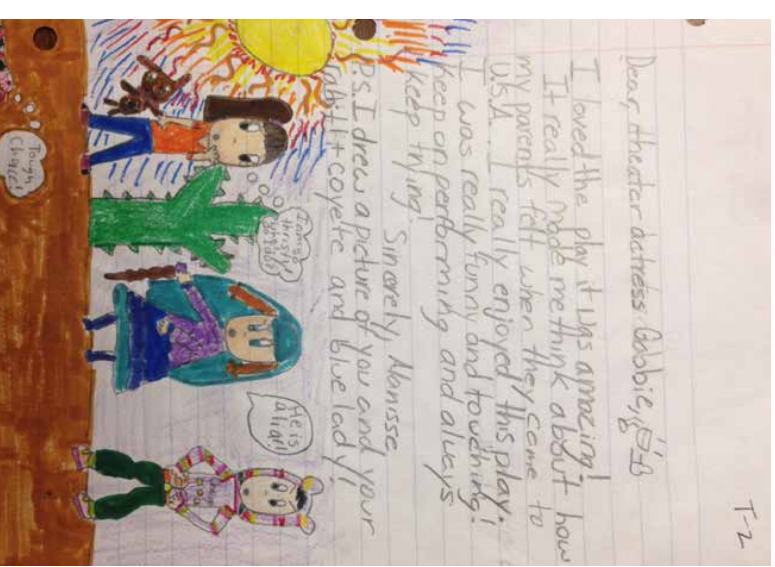 T-2
Dear, theater actress Gabbie,
I loved the play it was amazing!
It really made me think about how
my parents felt when they came to
U.S.A. I really enjoyed this play.
I was really funny and touching!
Keep on performing and always
keep trying!
Sincerely, Nanisse
P.S. I drew a picture of you and your
rabbit + coyote and blue lady!
I am so
thirsty!
He is
a liar!
Tough
Choice!